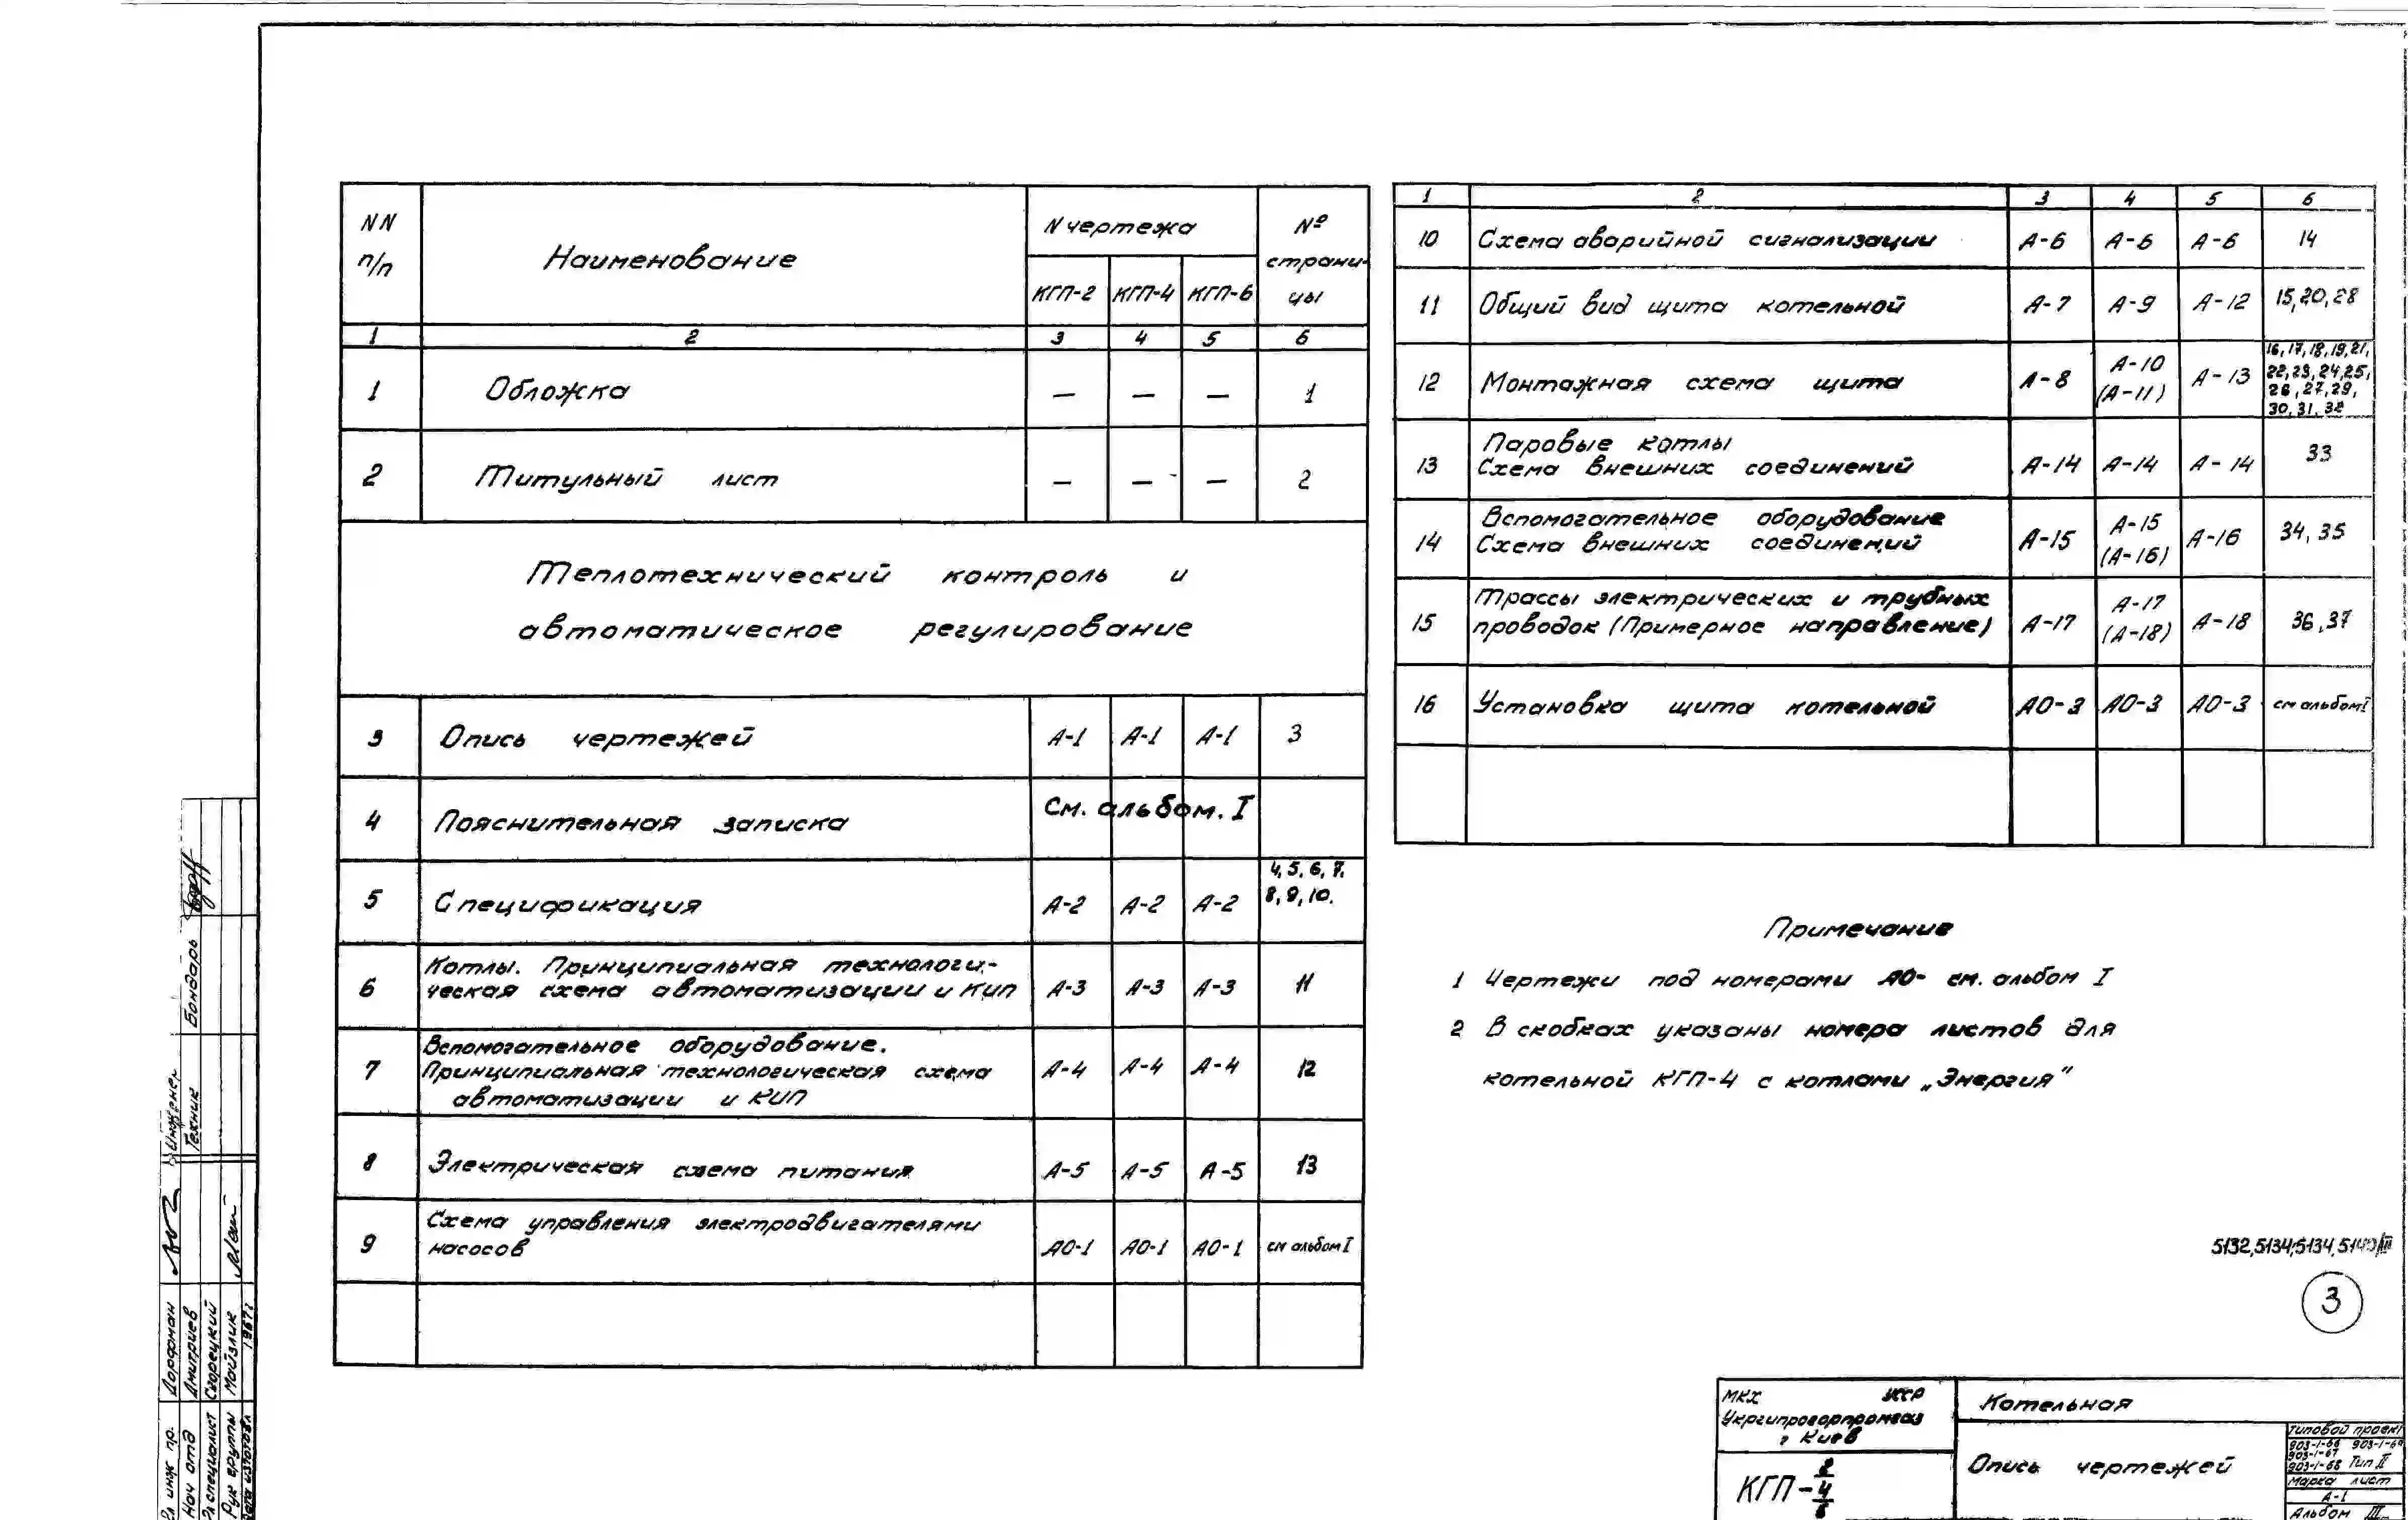 NN п/п Наименование N чертежа № страницы
КГП-2 КГП-4 КГП-6
1 2 3 4 5 6
1 Обложка — — — 1
2 Титульный лист — — — 2
Теплотехнический контроль и
автоматическое регулирование
3 Опись чертежей А-1 А-1 А-1 3
4 Пояснительная записка См. альбом. I
5 Спецификация А-2 А-2 А-2 4, 5, 6, 7, 8, 9, 10.
6 Котлы. Принципиальная технологи-
ческая схема автоматизации и КИП А-3 А-3 А-3 11
7 Вспомогательное оборудование.
Принципиальная технологическая схема
автоматизации и КИП А-4 А-4 А-4 12
8 Электрическая схема питания А-5 А-5 А-5 13
9 Схема управления электродвигателями
насосов АО-1 АО-1 АО-1 см альбом I
1 2 3 4 5 6
10 Схема аварийной сигнализации А-6 А-6 А-6 14
11 Общий вид щита котельной А-7 А-9 А-12 15, 20, 28
12 Монтажная схема щита А-8 А-10 (А-11) А-13 16, 17, 18, 19, 21,
22, 23, 24, 25,
26, 27, 29,
30, 31, 32
13 Паровые котлы
Схема внешних соединений А-14 А-14 А-14 33
14 Вспомогательное оборудование
Схема внешних соединений А-15 А-15 (А-16) А-16 34, 35
15 Трассы электрических и трубных
проводок (Примерное направление) А-17 А-17 (А-18) А-18 36, 37
16 Установка щита котельной АО-3 АО-3 АО-3 см альбом I
Примечание
1 Чертежи под номерами АО- см. альбом I
2 В скобках указаны номера листов для
котельной КГП-4 с котлами „Энергия"
5132, 5134, 5134, 5140/III
3
МКХ УССР
Укргипрогорпромгаз
г Киев
КГП- 2 4 6
Котельная
Опись чертежей
Типовой проект
903-1-66 903-1-69
903-1-67
903-1-68 Тип II
Марка лист
А-1
Альбом III
Гл инж пр. Дорфман
Нач отд Дмитриев
Гл специалист Скорецкий
Рук группы Майзлик
Дата изготовл 1967г
Инженер
Техник Бондарь